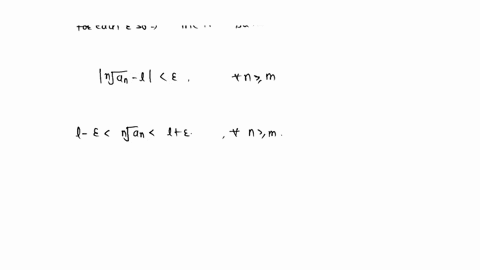 for each ε
|ⁿ√aₙ - l| < ε . ∀ n ⩾ m
l - ε < ⁿ√aₙ < l + ε . , ∀ n ⩾ m .